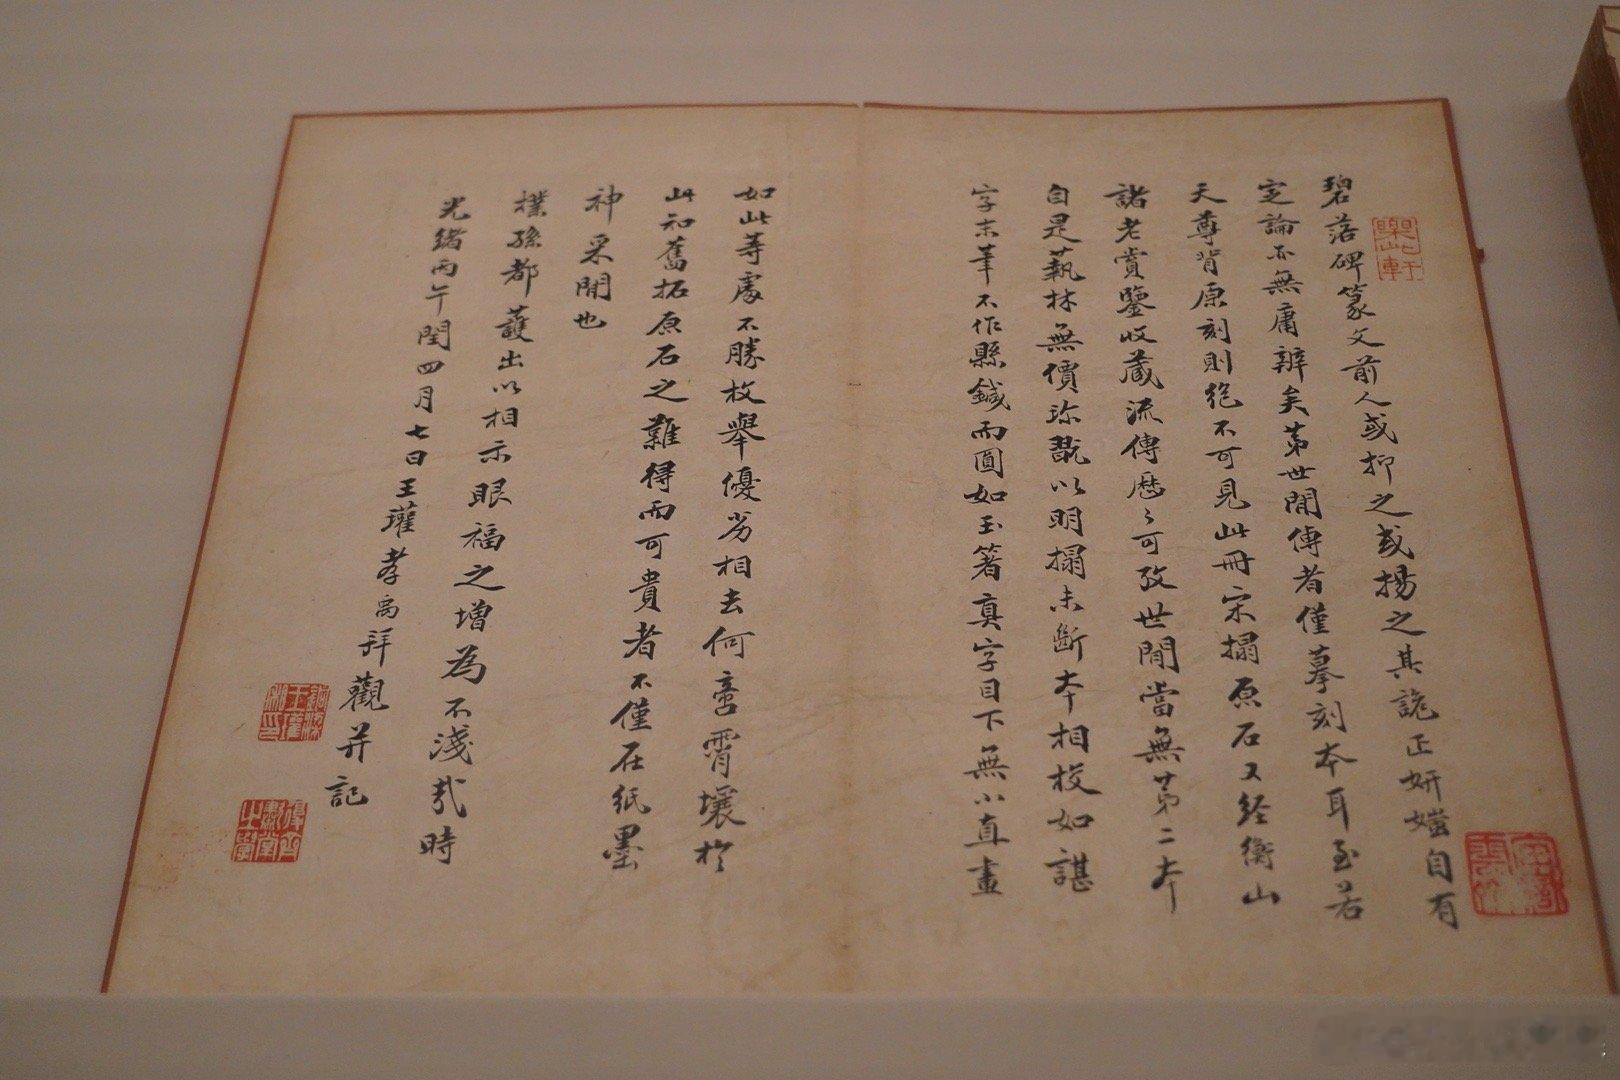 碧落碑篆文前人或抑之或揚之其詭正妍媸自有
定論亦無庸辨矣第世間傳者僅摹刻本耳至若
天尊背原刻則絶不可見此冊宋搨原石又經衡山
諸老賞鑒收藏流傳歷々可攷世間當無第二本
自是藝林無價珍翫以明搨未斷本相校如諶
字末筆不作縣鍼而圓如玉箸真字目下無小直畫
如此等處不勝枚舉優劣相去何啻霄壤於
此知舊拓原石之難得而可貴者不僅在紙墨
神采間也
樸孫都護出以相示眼福之增為不淺哉時
光緒丙午閏四月七日王瓘孝禹拜觀并記